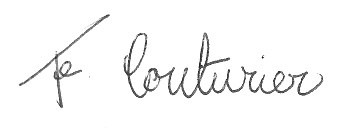 F. Couturier